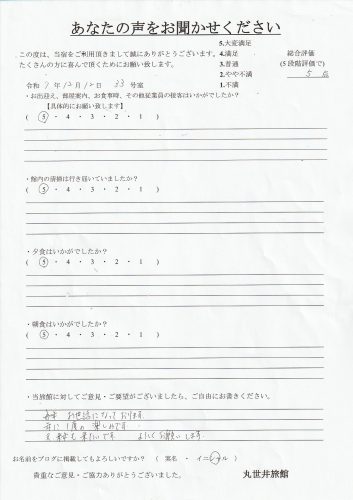 あなたの声をお聞かせください
5.大変満足
この度は、当宿をご利用頂きまして誠にありがとうございます。 4.満足 総合評価
たくさんの方に喜んで頂くためにお願い致します。 3.普通 (5段階評価で)
2.やや不満 5 点
令和 7年 12月 12日 33号室 1.不満
・お出迎え、部屋案内、お食事時、その他従業員の接客はいかがでしたか？
【具体的にお願い致します】
( 5 ・ 4 ・ 3 ・ 2 ・ 1 )
・館内の清掃は行き届いていましたか？
( 5 ・ 4 ・ 3 ・ 2 ・ 1 )
・夕食はいかがでしたか？
( 5 ・ 4 ・ 3 ・ 2 ・ 1 )
・朝食はいかがでしたか？
( 5 ・ 4 ・ 3 ・ 2 ・ 1 )
・当旅館に対してご意見・ご要望がございましたら、ご自由にお書きください。
毎年 お世話になっております。
年に1度の楽しみです。
来年も来たいです。 よろしくお願いします。
お名前をブログに掲載してもよろしいですか？ ( 実名 ・ イニシャル )
貴重なご意見・ご協力ありがとうございました。 丸世井旅館